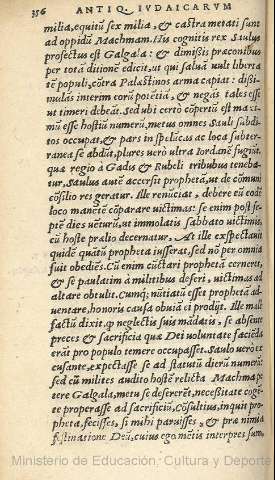 356 ANTIQ. IVDAICARVM
milia, equitũ sex milia, & castra metati sunt
ad oppidũ Machmam. His cognitis rex Saulus
profectus est Galgala: & dimissis præconibus
per totã ditionẽ edicit, ut qui saluã uult libertã
tẽ populi, cõtra Palæstinos arma capiat: dissi-
mulãs interim eorũ potẽtiã, & negãs tales esse
ut timeri debeãt. Sed ubi certò cõpertũ est maxi
mũ esse hostiũ numerũ, metus omnes Sauli subdi
tos occupat, & pars in spelũcas ac loca subter-
ranea se abdũt, plures uerò ultra Iordanẽ fugiũt,
quæ regio à Gadis & Rubeli tribubus teneba-
tur. Saulus autẽ accersit prophetã, ut de cõmuni
cõsilio res geratur. Ille renũciat, debere eũ eodẽ
loco manẽtẽ cõparare uictimas: se enim post se-
ptẽ dies uẽturũ, ut immolatis sabbato uictimis
cũ hoste prælio decernatur. At ille expectauit
quidẽ quãtũ propheta iusserat, sed nõ per omnia
fuit obediẽs. Cũ enim cũctari prophetã cerneret,
& se paulatim à militibus deseri, uictimas ad
altare obtulit. Cumq; nũtiatũ esset prophetã ad-
uentare, honoris causa obuiã ei prodijt. Ille malè
factũ dixit, qƥ neglectis suis mãdatis, se absente
preces & sacrificia quæ Dei voluntate faciẽda
erãt pro populo temere occupasset. Saulo uerò ex
cusante, expectasse se ad statutũ dierũ numerũ:
sed cũ milites audito hostẽ relicta Machma pe
tere Galgala, metu se desererẽt, necessitate coge-
te properasse ad sacrificiũ, Cõsultius, inquit pro-
pheta, fecisses, si mihi paruisses, & præ nimia
festinatione Deũ, cuius ego mẽtis interpres sum,
Ministerio de Educación, Cultura y Deporte